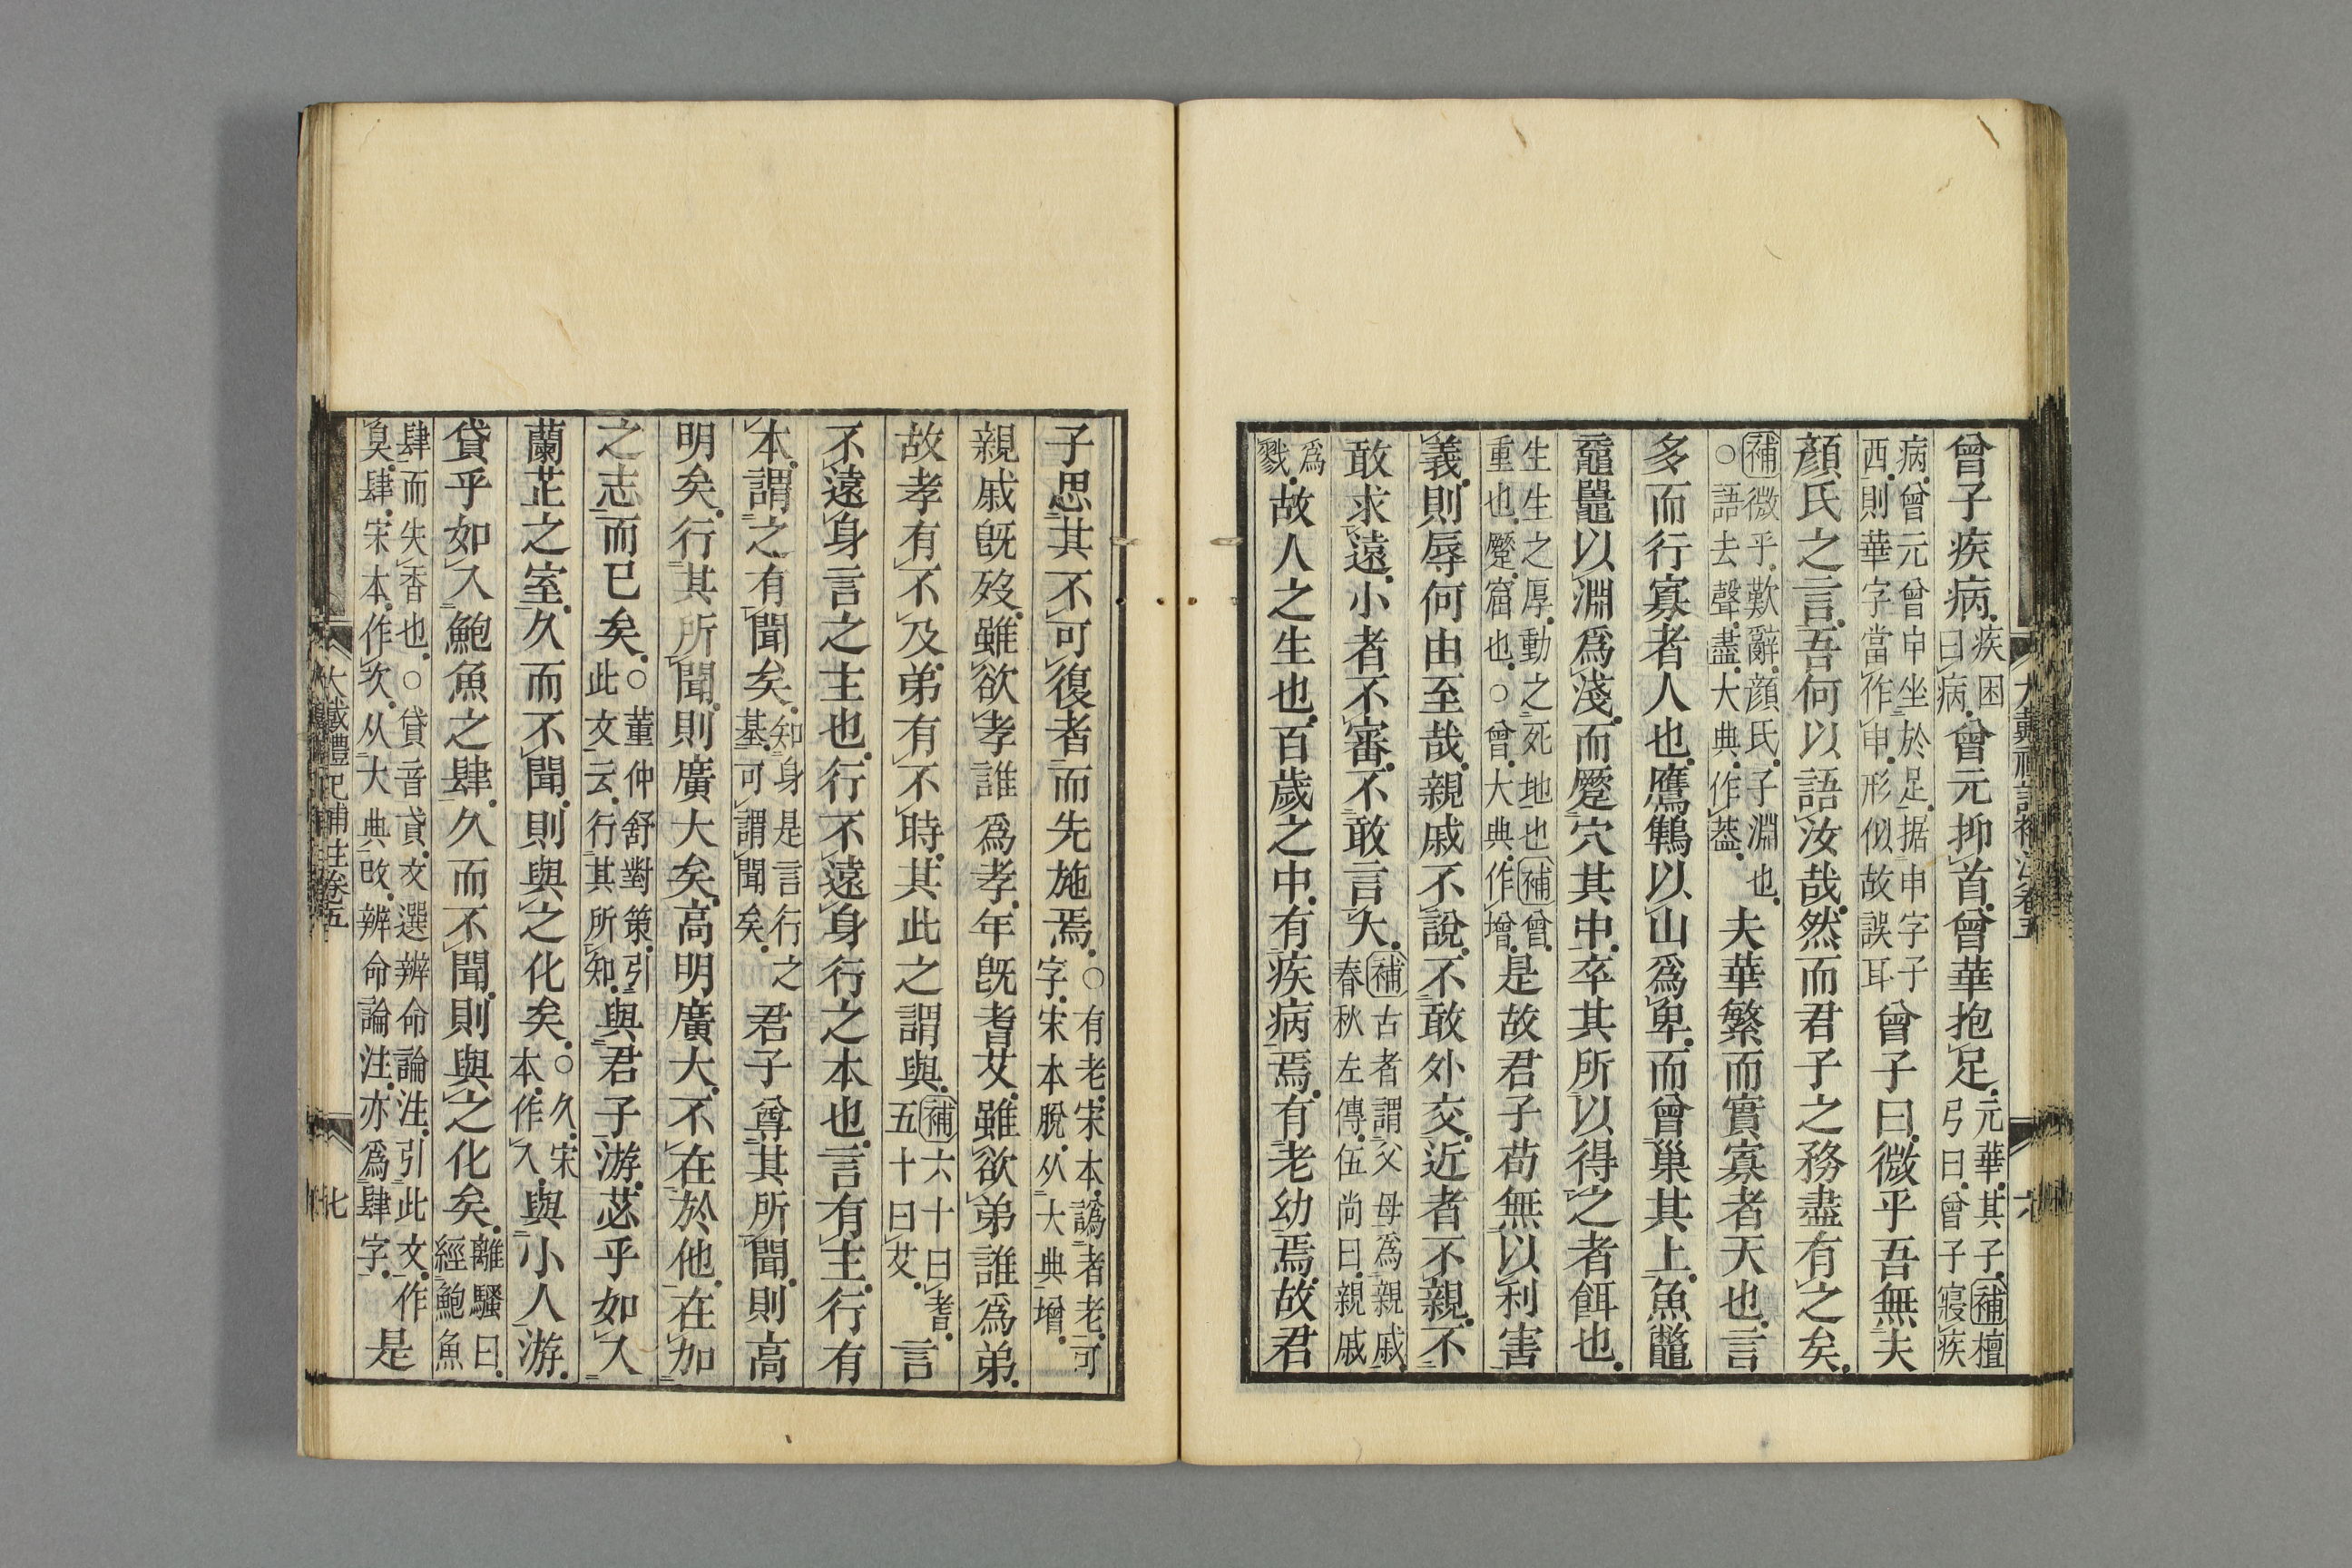 曾子疾病疾困曰病曾元抑首曾華抱足元華其子補檀弓曰曾子寢疾
病曾元曾申坐於足据申字子西則華字當作申形似故誤耳曾子曰微乎吾無夫
顏氏之言吾何以語汝哉然而君子之務盡有之矣
補微乎歎辭顏氏子淵也○語去聲盡大典作蓋夫華繁而實寡者天也言
多而行寡者人也鷹鶽以山爲卑而曾巢其上魚鼈
黿鼉以淵爲淺而蹷穴其中卒其所以得之者餌也
生生之厚動之死地也補曾重也蹷窟也○曾大典作增是故君子苟無以利害
義則辱何由至哉親戚不說不敢外交近者不親不
敢求遠小者不審不敢言大補古者謂父母爲親戚春秋左傳伍尚曰親戚
爲戮故人之生也百歲之中有疾病焉有老幼焉故君
大戴禮記補注卷五
子思其不可復者而先施焉○有老宋本譌者老可字宋本脫从大典增
親戚旣歿雖欲孝誰爲孝年旣耆艾雖欲弟誰爲弟
故孝有不及弟有不時其此之謂與補六十曰耆五十曰艾言
不遠身言之主也行不遠身行之本也言有主行有
本謂之有聞矣知身是言行之基可謂聞矣君子尊其所聞則高
明矣行其所聞則廣大矣高明廣大不在於他在加
之志而已矣○董仲舒對策引此文云行其所知與君子游苾乎如入
蘭芷之室久而不聞則與之化矣○久宋本作入與小人游
貸乎如入鮑魚之肆久而不聞則與之化矣離騷曰經鮑魚
肆而失香也○貸音貣文選辨命論注引此文作臭肆宋本作次从大典改辨命論注亦爲肆字是
大戴禮記補注卷五 七